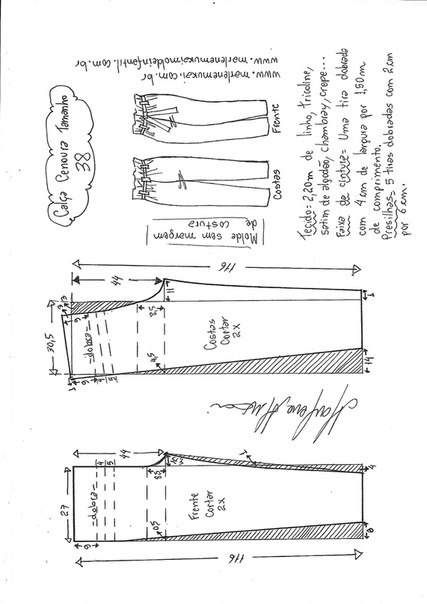 Calça Cenoura Tamanho
38
Frente
Costas
www.marlenemukai.com.br
www.marlenemukaimoldeinfantil.com.br
Tecido= 2,20m de linho, tricoline,
satim de algodão, chambray, crepe...
Faixa de cintura= Uma tira dobrada
com 4 cm de largura por 1,80m
de comprimento.
Presilhas= 5 tiras dobradas com 2 cm
por 6 cm.
Molde sem margem
de costura
116
44
11
1
30,5
8,5
-dobra-
Costas
Cortar
2x
14
Marlene Mukai
44
27
-dobra-
Frente
Cortar
2x
4
8
116